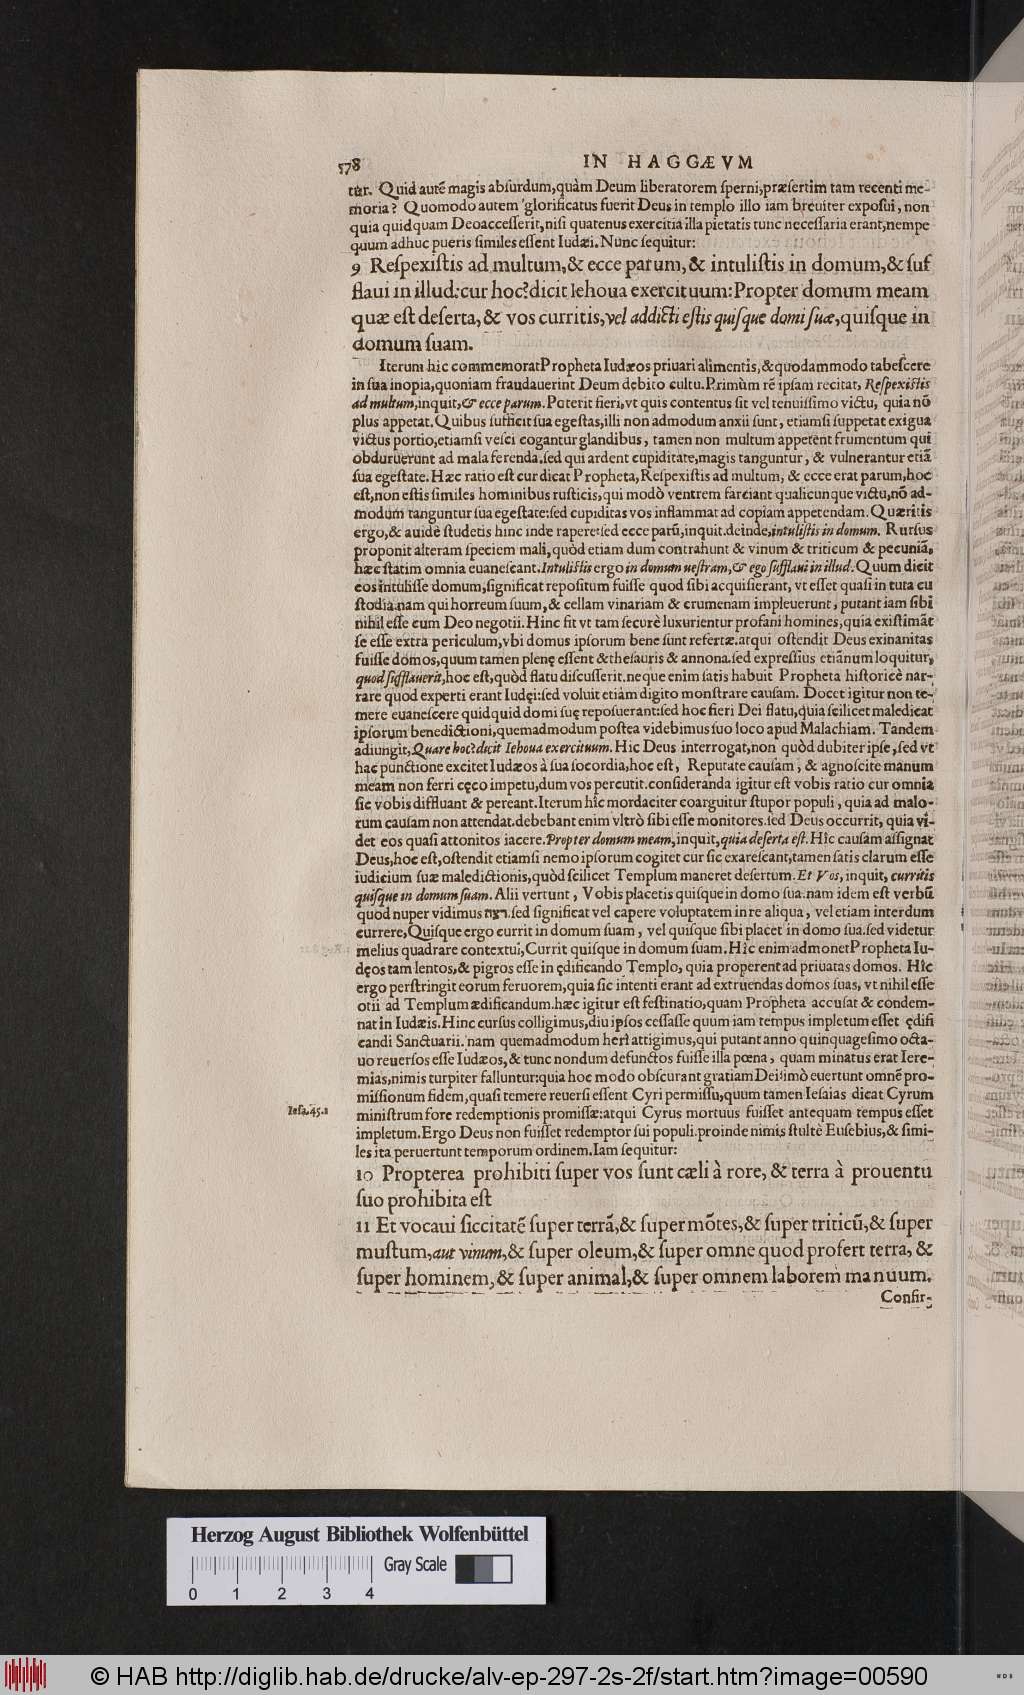 578
IN HAGGÆVM
tur. Quid autē magis absurdum,quàm Deum liberatorem sperni,præsertim tam recenti me-
moria? Quomodo autem glorificatus fuerit Deus in templo illo iam breuiter exposui, non
quia quidquam Deo accesserit, nisi quatenus exercitia illa pietatis tunc necessaria erant,nempe
quum adhuc pueris similes essent Iudæi. Nunc sequitur:
9 Respexistis ad multum,& ecce parum,& intulistis in domum,& suf
flaui in illud:cur hoc? dicit Iehoua exercituum:Propter domum meam
quæ est deserta,& vos curritis,vel addicti estis quisque domi suæ,quisque in
domum suam.
Iterum hic commemorat Propheta Iudæos priuari alimentis,& quodammodo tabescere
in sua inopia,quoniam fraudauerint Deum debito cultu.Primùm rē ipsam recitat, Respexistis
ad multum,inquit,& ecce parum.Poterit fieri,vt quis contentus sit vel tenuissimo victu, quia nō
plus appetat.Quibus sufficit sua egestas,illi non admodum anxii sunt, etiamsi suppetat exigua
victus portio,etiamsi vesci cogantur glandibus, tamen non multum appetent frumentum qui
obduruerunt ad mala ferenda.sed qui ardent cupiditate,magis tanguntur, & vulnerantur etiā
sua egestate.Hæc ratio est cur dicat Propheta,Respexistis ad multum, & ecce erat parum,hoc
est,non estis similes hominibus rusticis,qui modò ventrem farciant qualicunque victu,nō ad-
modum tanguntur sua egestate:sed cupiditas vos inflammat ad copiam appetendam.Quæritis
ergo,& auidè studetis hinc inde rapere:sed ecce parū,inquit.deinde,intulistis in domum. Rursus
proponit alteram speciem mali,quòd etiam dum contrahunt & vinum & triticum & pecuniā,
hæc statim omnia euanescant.Intulistis ergo in domum uestram,& ego sufflaui in illud.Quum dicit
eos intulisse domum,significat repositum fuisse quod sibi acquisierant, vt esset quasi in tuta cu
stodia.nam qui horreum suum,& cellam vinariam & crumenam impleuerunt, putant iam sibi
nihil esse cum Deo negotii.Hinc fit vt tam securè luxurientur profani homines,quia existimāt
se esse extra periculum,vbi domus ipsorum bene sunt refertæ.atqui ostendit Deus exinanitas
fuisse domos,quum tamen plenę essent & thesauris & annona.sed expressius etiānum loquitur,
quod sufflauerit,hoc est,quòd flatu discusserit.neque enim satis habuit Propheta historicè nar-
rare quod experti erant Iudęi:sed voluit etiam digito monstrare causam. Docet igitur non te-
mere euanescere quidquid domi suę reposuerant:sed hoc fieri Dei flatu,quia scilicet maledicat
ipsorum benedictioni,quemadmodum postea videbimus suo loco apud Malachiam. Tandem
adiungit,Quare hoc? dicit Iehoua exercituum.Hic Deus interrogat,non quòd dubitet ipse, sed vt
hac punctione excitet Iudæos à sua socordia,hoc est, Reputate causam, & agnoscite manum
meam non ferri cęco impetu,dum vos percutit.consideranda igitur est vobis ratio cur omnia
sic vobis diffluant & pereant.Iterum hîc mordaciter coarguitur stupor populi, quia ad malo-
rum causam non attendat.debebant enim vltrò sibi esse monitores.sed Deus occurrit, quia vi-
det eos quasi attonitos iacere.Propter domum meam,inquit,quia deserta est.Hîc causam assignat
Deus,hoc est,ostendit etiamsi nemo ipsorum cogitet cur sic exarescant,tamen satis clarum esse
iudicium suæ maledictionis,quòd scilicet Templum maneret desertum.Et Vos,inquit, curritis
quisque in domum suam.Alii vertunt, Vobis placetis quisque in domo sua.nam idem est verbū
quod nuper vidimus רצה.sed significat vel capere voluptatem in re aliqua, vel etiam interdum
currere,Quisque ergo currit in domum suam, vel quisque sibi placet in domo sua.sed videtur
melius quadrare contextui,Currit quisque in domum suam.Hîc enim admonet Propheta Iu-
dęos tam lentos,& pigros esse in ędificando Templo, quia properent ad priuatas domos. Hîc
ergo perstringit eorum feruorem,quia sic intenti erant ad extruendas domos suas, vt nihil esse
otii ad Templum ædificandum.hæc igitur est festinatio,quam Propheta accusat & condem-
nat in Iudæis.Hinc rursus colligimus,diu ipsos cessasse quum iam tempus impletum esset ędifi
candi Sanctuarii. nam quemadmodum heri attigimus,qui putant anno quinquagesimo octa-
uo reuersos esse Iudæos,& tunc nondum defunctos fuisse illa pœna, quam minatus erat Iere-
mias,nimis turpiter falluntur:quia hoc modo obscurant gratiam Dei:imò euertunt omnē pro-
missionum fidem,quasi temere reuersi essent Cyri permissu,quum tamen Iesaias dicat Cyrum
Iesa.45.1
ministrum fore redemptionis promissæ:atqui Cyrus mortuus fuisset antequam tempus esset
impletum.Ergo Deus non fuisset redemptor sui populi.proinde nimis stultè Eusebius,& simi-
les ita peruertunt temporum ordinem.Iam sequitur:
10 Propterea prohibiti super vos sunt cæli à rore, & terra à prouentu
suo prohibita est
11 Et vocaui siccitatē super terrā,& super mōtes,& super triticū,& super
mustum,aut vinum,& super oleum,& super omne quod profert terra, &
super hominem,& super animal,& super omnem laborem manuum.
Confir-
Herzog August Bibliothek Wolfenbüttel
0 1 2 3 4
Gray Scale
© HAB http://diglib.hab.de/drucke/alv-ep-297-2s-2f/start.htm?image=00590
WDB